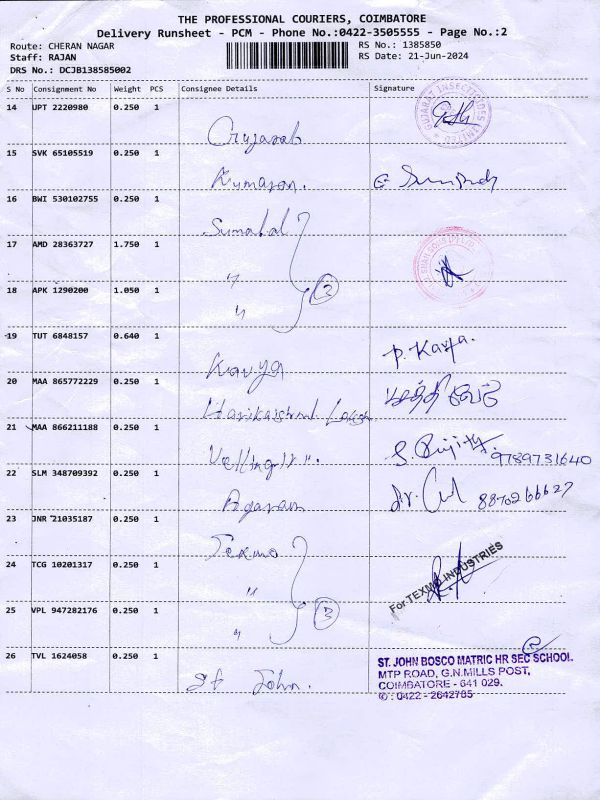 THE PROFESSIONAL COURIERS, COIMBATORE
Delivery Runsheet - PCM - Phone No.:0422-3505555 - Page No.:2
Route: CHERAN NAGAR RS No.: 1385850
Staff: RAJAN RS Date: 21-Jun-2024
DRS No.: DCJB138585002
S No Consignment No Weight PCS Consignee Details Signature
14 UPT 2220980 0.250 1
GUJARAT INSECTICIDES LIMITED
Gujarat
15 SVK 65105519 0.250 1
Kumaran.
16 BWI 530102755 0.250 1
17 AMD 28363727 1.750 1
"
18 APK 1290200 1.050 1 2
"
19 TUT 6848157 0.640 1
Kavya P. Kavya.
20 MAA 865772229 0.250 1
21 MAA 866211188 0.250 1
9789731640
22 SLM 348709392 0.250 1
8870266627
23 JNR 21035187 0.250 1
Texmo
24 TCG 10201317 0.250 1
For TEXMO INDUSTRIES
"
25 VPL 947282176 0.250 1 3
"
26 TVL 1624058 0.250 1
St John.
ST. JOHN BOSCO MATRIC HR SEC SCHOOL.
MTP ROAD, G.N.MILLS POST,
COIMBATORE - 641 029.
✆ : 0422 - 2642765